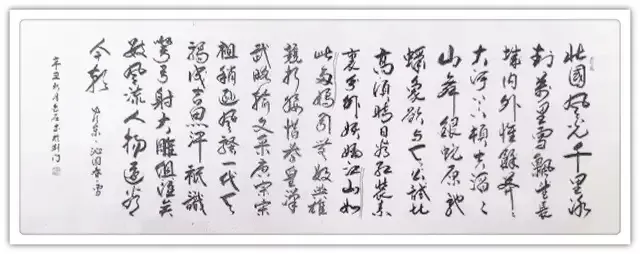 北國風光千里冰
封萬里雪飄望長
城内外惟餘莽〻
大河上下頓失滔〻
山舞銀蛇原馳
蠟象欲与天公試比
高須晴日看紅裝素
裹分外妖嬈江山如
此多嬌引無數英雄
競折腰惜秦皇漢
武略輸文采唐宗宋
祖稍遜風騷一代天
驕成吉思汗祇識
彎弓射大雕俱往矣
數風流人物還看
今朝 毛澤東沁园春雪
辛丑